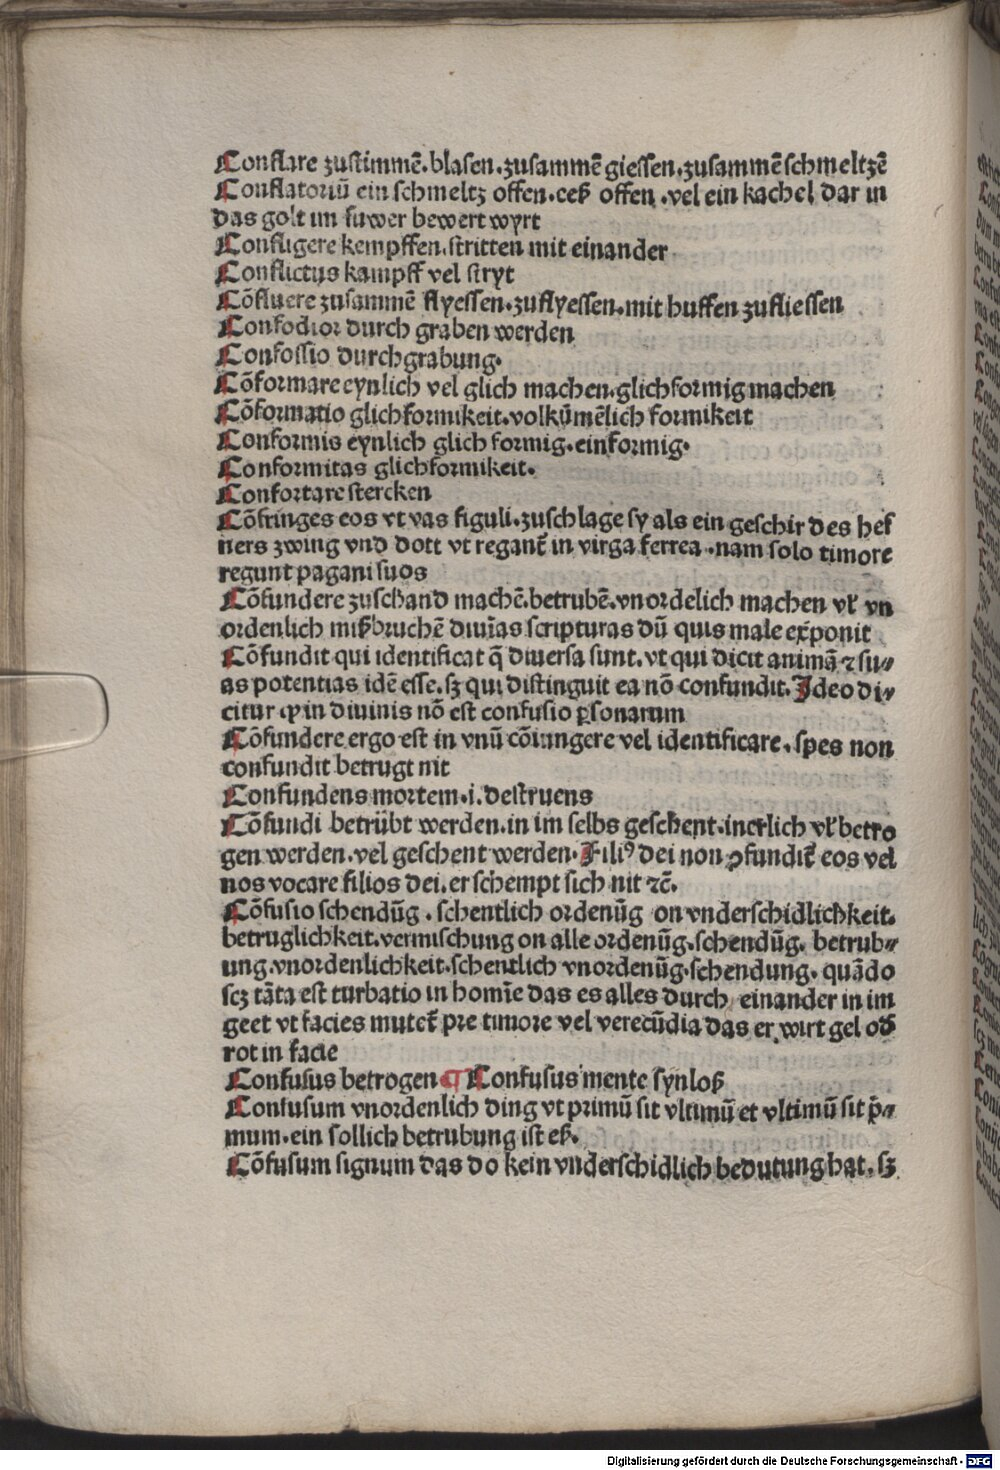 Conflare zustimmē.blasen.zusammē giessen.zusammē schmeltzē
Conflatoriū ein schmeltz offen.ceß offen.vel ein kachel dar in
das golt im fuwer bewert wyrt
Confligere kempffen.stritten mit einander
Conflictus kampff vel stryt
Cōfluere zusammē flyessen.zuflyessen.mit huffen zufliessen
Confodior durch graben werden
Confossio durchgrabung.
Cōformare eynlich vel glich machen.glichformig machen
Cōformatio glichformikeit.volkūmēlich formikeit
Conformis eynlich glich formig.einformig.
Conformitas glichformikeit.
Confortare stercken
Cōfringes eos vt vas figuli.zuschlage sy als ein geschir des hef
ners zwing vnd dott vt regant̄ in virga ferrea.nam solo timore
regunt pagani suos
Cōfundere zuschand machē.betrubē.vnordelich machen vł vn
ordenlich mißbruchē diuīas scripturas dū quis male exponit
Cōfundit qui identificat q̄ diuersa sunt.vt qui dicit animā ⁊ su⸗
as potentias idē esse.sꝫ qui distinguit ea nō confundit.Ideo di⸗
citur ꝙ in diuinis nō est confusio ꝑsonarum
Cōfundere ergo est in vnū cōiungere vel identificare.spes non
confundit betrugt nit
Confundens mortem.i.destruens
Cōfundi betrübt werden.in im selbs geschent.inerlich vł betro
gen werden.vel geschent werden.Filiꝰ dei non ꝯfundit̄ eos vel
nos vocare filios dei.er schempt sich nit ⁊c̄.
Cōfusio schendūg.schentlich ordenūg on vnderschidlichkeit.
betruglichkeit.vermischung on alle ordenūg.schendūg.betrub⸗
ung.vnordenlichkeit.schentlich vnordenūg.schendung.quādo
scꝫ tāta est turbatio in homīe das es alles durch einander in im
geet vt facies mutet̄ pre timore vel verecūdia das er wirt gel od̄
rot in facie
Confusus betrogen ¶ Confusus mente synloß
Confusum vnordenlich ding vt primū sit vltimū et vltimū sit p̄⸗
mum.ein sollich betrubung ist eß.
Cōfusum signum das do kein vnderschidlich bedutung hat.sꝫ
Digitalisierung gefördert durch die Deutsche Forschungsgemeinschaft - DFG